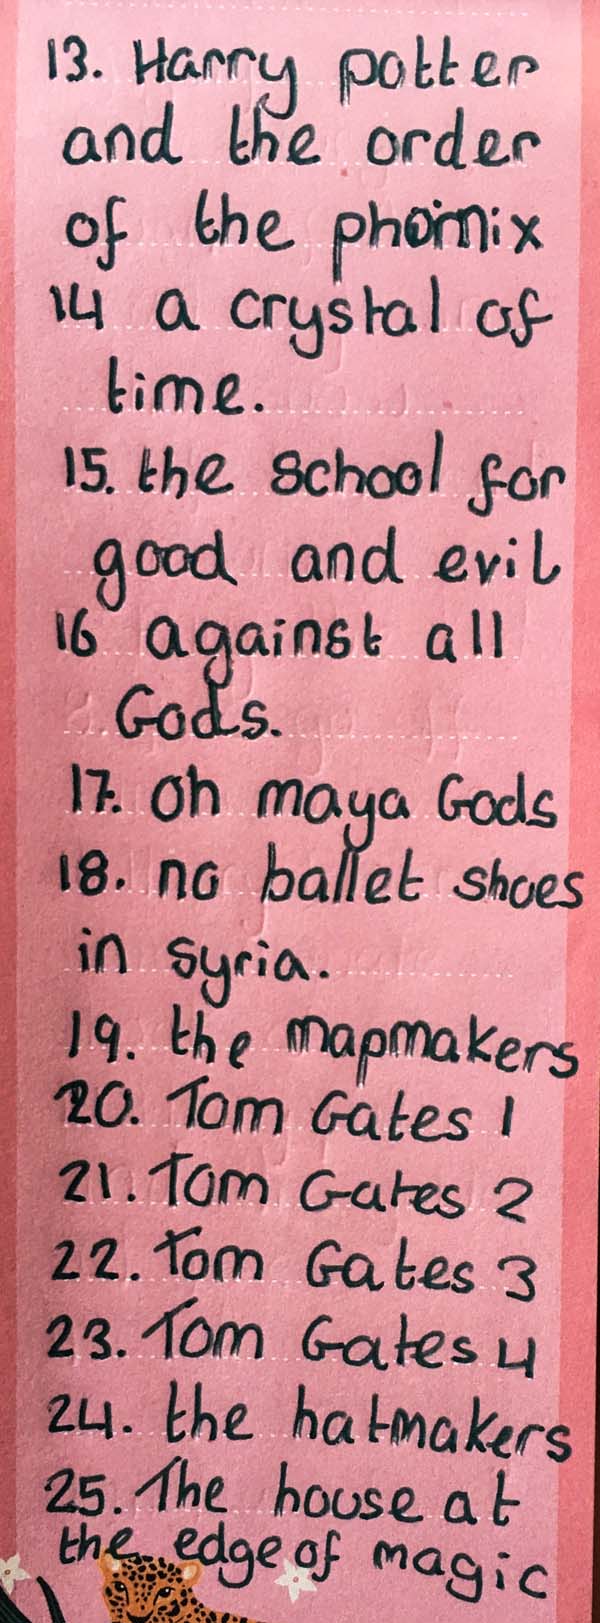 13. Harry potter
and the order
of the phoinix
14 a crystal of
time.
15. the school for
good and evil
16 against all
Gods.
17. oh maya Gods
18. no ballet shoes
in syria.
19. the mapmakers
20. Tom Gates 1
21. Tom Gates 2
22. Tom Gates 3
23. Tom Gates 4
24. the hatmakers
25. The house at
the edge of magic